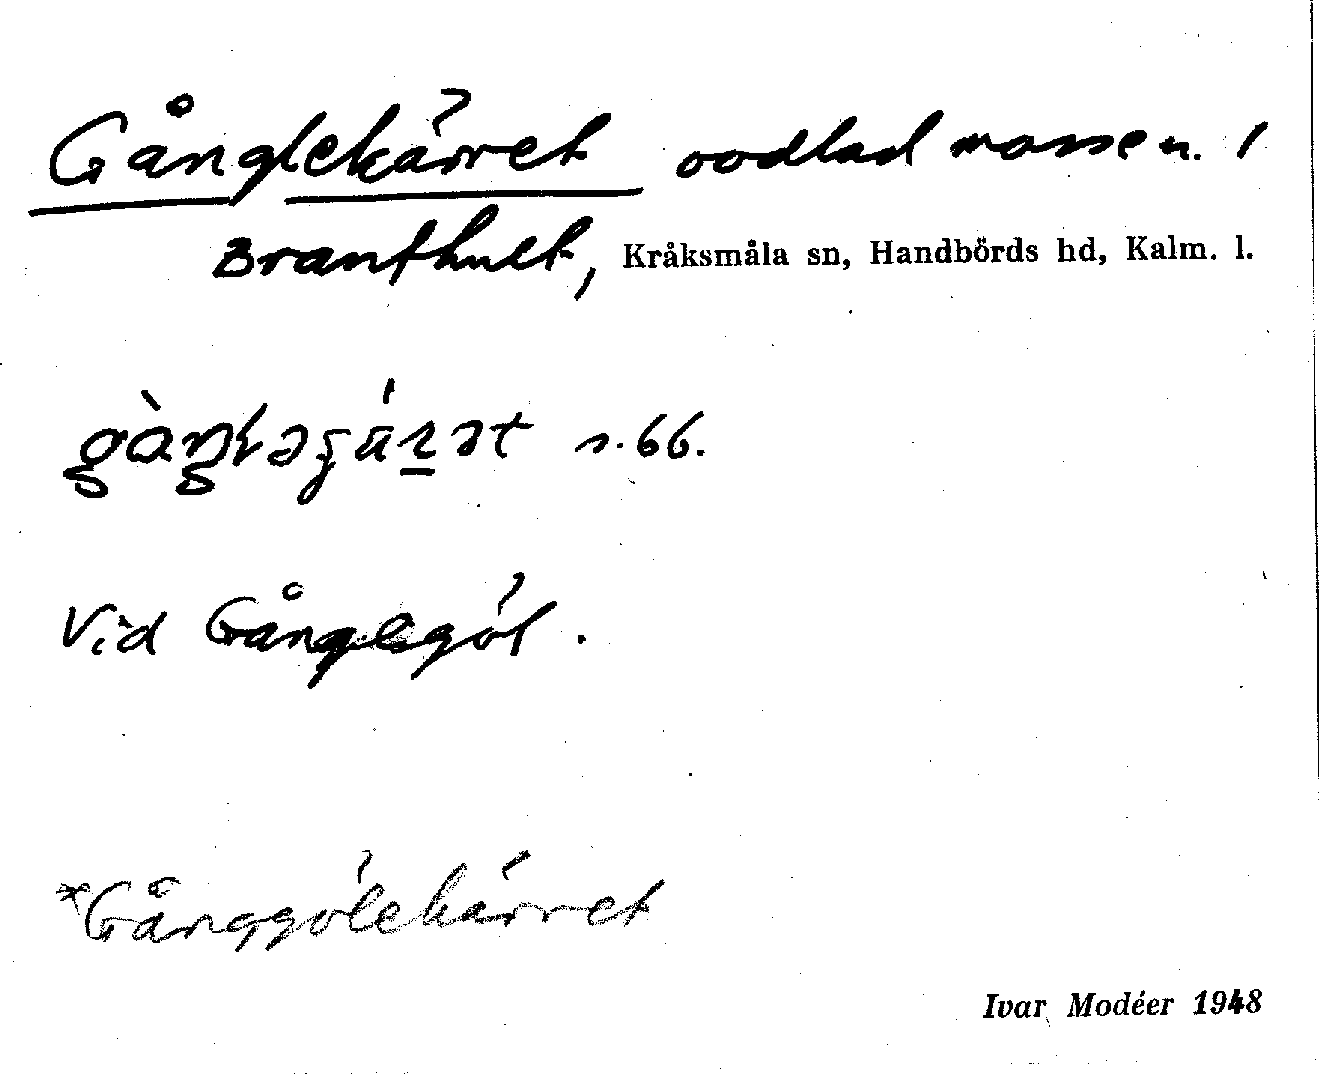 Gånglekärret oodlad mosse n. /
Branthult, Kråksmåla sn, Handbörds hd, Kalm. l.
s. 66.
Vid Gånglegöl.
*Gånggölekärret
Ivar Modéer 1948